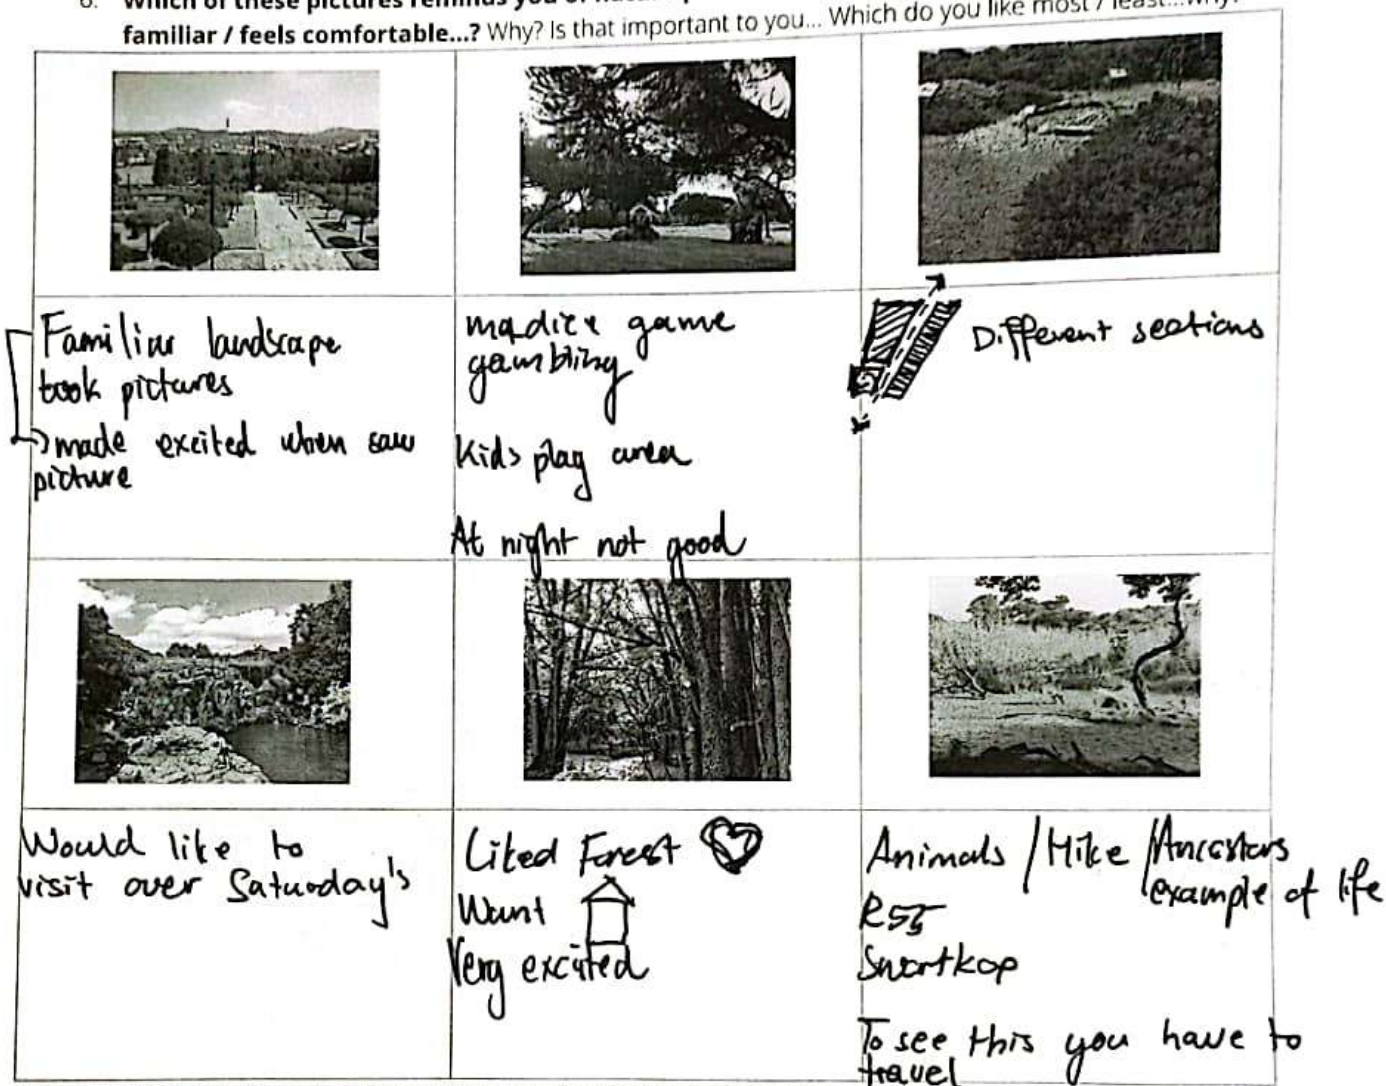 6. Which of these pictures reminds you of
familiar / feels comfortable...? Why? Is that important to you... Which do you like most / least...why?
Familiar landscape
took pictures
→ made excited when saw
picture
game
gambling
Kids play area
At night not good
Different sections
Would like to
visit over Saturday's
Liked Forest
Want
Very excited
Animals / Hike / Ancestors
example of life
Swartkop
To see this you have to
travel